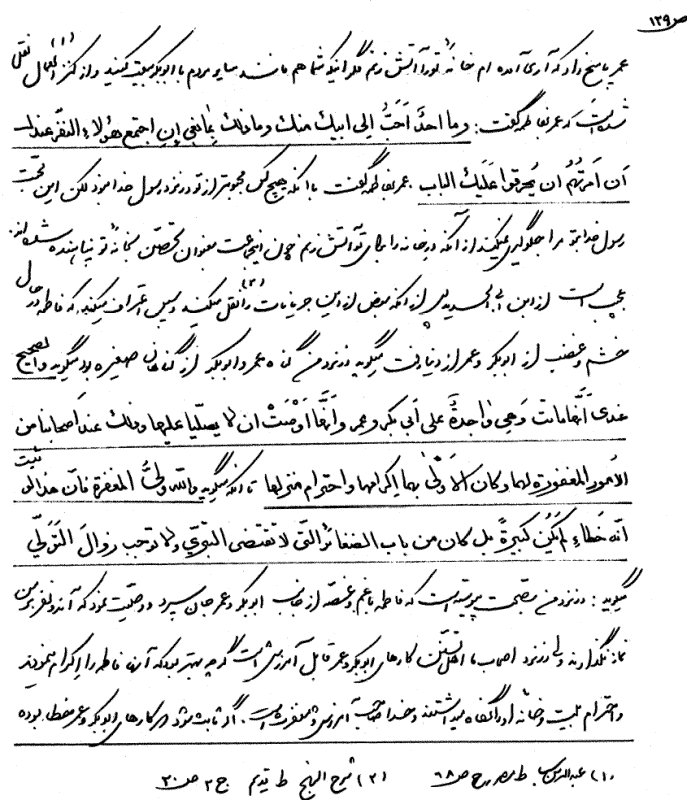 ص ۱۲۹
عمر پاسخ داد که آری آمده ام خانه تو را آتش زنم مگر اینکه شما هم مانند سایر مردم با ابوبکر بیعت کنید و از کنز العمال نقل (۱)
شده است که عمر بفاطمه گفت: وما احدٌ اَحَبُّ الی ابیك منك وما ذلك بمانعی اِن اجتمع هؤلاء النفر عندك
اَن آمرتُهُم ان یُحرقوا عَلَیك الباب. عمر بفاطمه گفت با آنکه هیچ کس محبوبتر از تو در نزد رسول خدا نبود لکن این محبت
رسول خدا بتو مرا جلوگیری نمیکند از آنکه در خانه را بروی تو آتش زنم چون این جماعت بعنوان تحصّن بخانه تو پناهنده شده اند.
عجب است از ابن ابی الحدید پس از آنکه بعض از این جریانات را نقل میکند (۲) و سپس اعتراف میکند که فاطمه در حال
خشم و غضب از ابوبکر و عمر از دنیا رفت میگوید در نزد من گناه عمر و ابوبکر از گناهان صغیره بود میگوید والصحیح
عندی اَنَّها ماتت وَهی واجدةٌ علی اَبی بکر و عمر و اَنَّها اَوْصَتْ ان لا یصلّیا علیها وذلك عند اَصحابنا من
الاُمور المغفورة لهما وکان الاَوْلیٰ بهما اکرامها واحترام منزلها تا آنکه میگوید والله ولیُّ المغفرة فانّ هذا لو ثبت
انّه خَطاء لم تکن کبیرةً بل کان من باب الصغائر الّتی لا تقتضی التبرّی ولا توجب زوال التَوَلّی
میگوید: در نزد من بصحت پیوسته است که فاطمه با غم و غصّه از جانب ابوبکر و عمر جان سپرد و وصیّت نمود که آن دو نفر بر من
نماز نگذارند ولی در نزد اصحاب ما اهل تسنّن کارهای ابوبکر و عمر قابل آمرزش است گرچه بهتر بود که آن دو فاطمه را اکرام مینمودند
و احترام بیت و خانه او را نگاه میداشتند و خدا صاحب آمرزش و مغفرت است. اگر ثابت شود در کارهای ابوبکر و عمر خطا بوده
(۱) عبدالله بن سبا ط مصر ج ص ۶۸ (۲) شرح النهج ط قدیم ج ۲ ص ۲۰